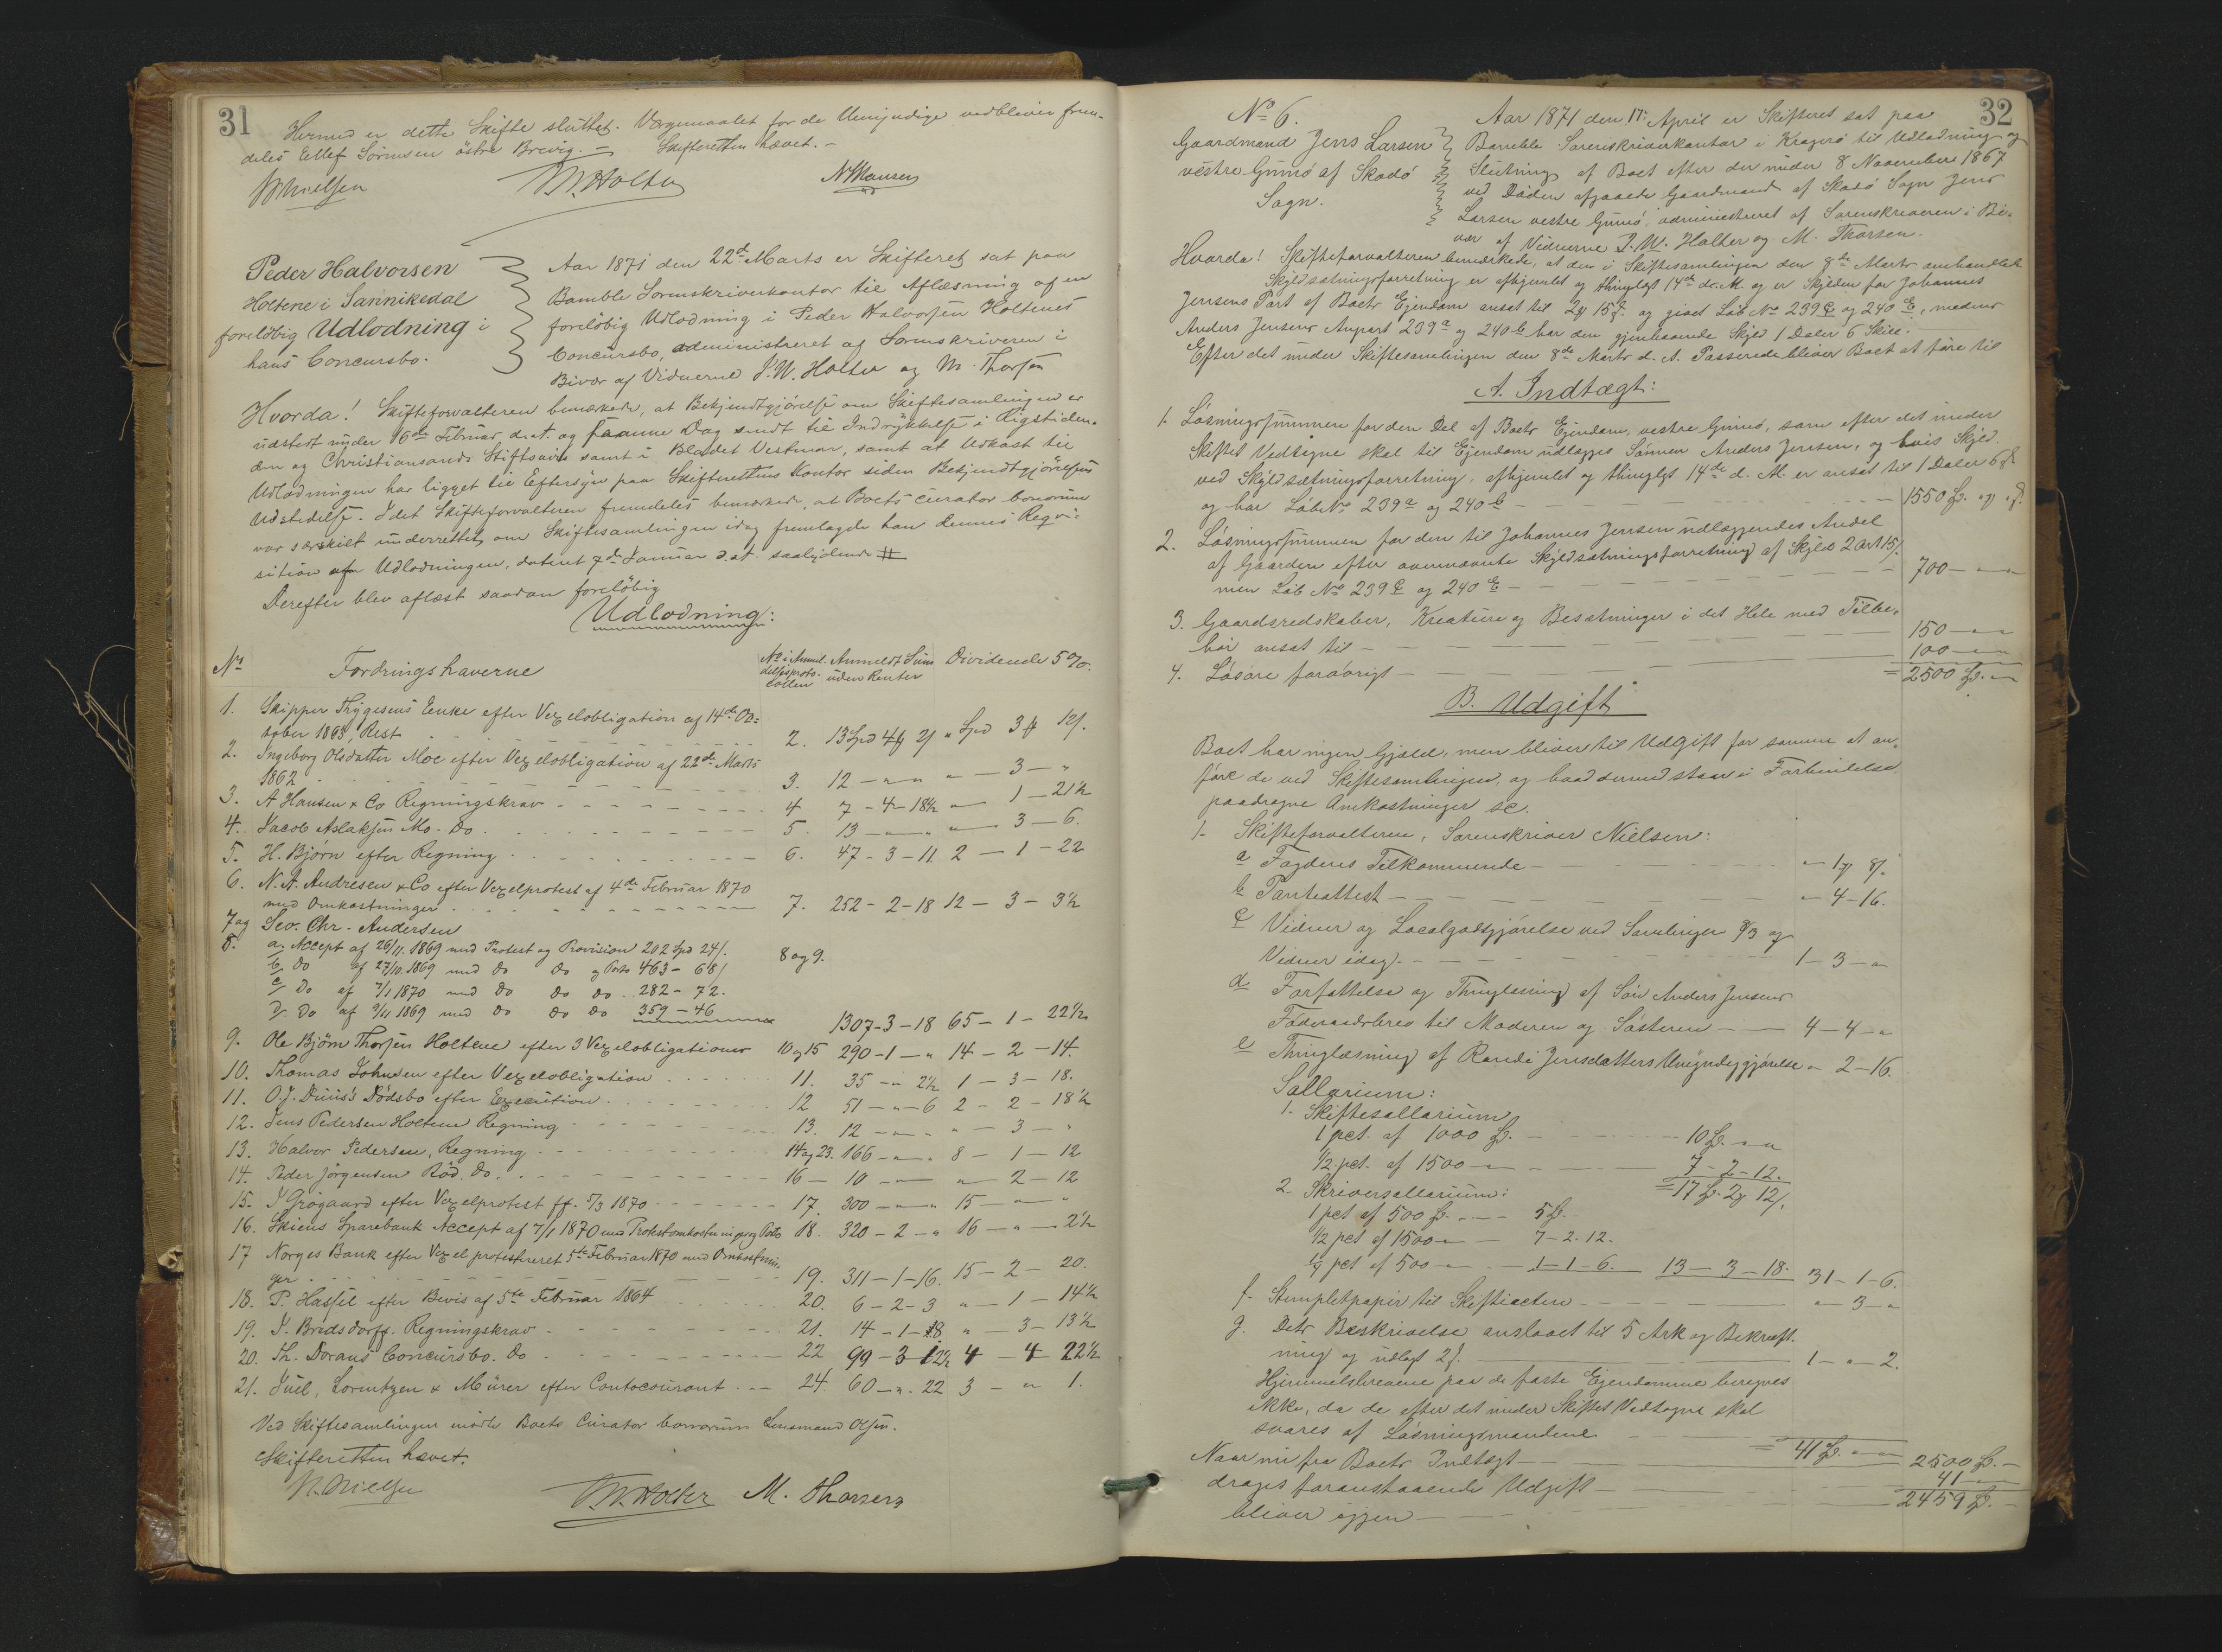 31
Hermed er dette Skifte sluttet. Værgemaalet for de Umyndige vedbliver frem-
deles Ellef Sörensen östre Brevig. — Skifteretten hævet. —
Nielsen J.W. Holter N Hansen
Peder Halvorsen
Holtene i Sannikedal
foreløbig Udlodning i
hans Concursbo.
Aar 1871 den 22de Marts er Skifteret sat paa
Bamble Sorenskriverkontor til Aflæsning af en
foreløbig Udlodning i Peder Halvorsen Holtenes
Concursbo, administreret af Sorenskriveren i
Bivær af Vidnerne J.W. Holter og M. Thorsen
Hvorda! Skifteforvalteren bemærkede, at Bekjendtgjörelse om Skiftesamlingen er
udstedt under 16de Februar d.A. og samme Dag sendt til Indrykkelse i Rigstiden-
den og Christiansands Stiftsavis samt i Bladet Vestmar, samt at Udkast til
Udlodningen har ligget til Eftersyn paa Skifterettens Kontor siden Bekjendtgjörelsens
Udstedelse. Idet Skifteforvalteren fremdeles bemærkede, at Boets curator bonorum
var særskilt underrettet om Skiftesamlingen idag fremlagde han dennes Reqvi-
sition af Udlodningen, dateret 7de Januar d.A. saalydende #
Derefter blev aflæst saadan foreløbig
Udlodning:
No Fordringshaverne No i Anmel- delsesproto- collen Anmeldt Sum uden Renter Dividende 5%.
1. Skipper Thygesens Enke efter Vexelobligation af 14de Oc-
tober 1863, Rest 2. 13 Spd 4 21 " Spd 3 12/.
2. Ingeborg Olsdatter Moe efter Vexelobligation af 22de Marts
1862 3. 12 — " — " " — 3 — "
3. A Hansen & Co Regningskrav 4 7 - 4 - 18½ " 1 — 21½
4. Jacob Aslaksen Mo. Do. 5. 13 — " — " " 3 — 6.
5. H. Bjørn efter Regning 6. 47 - 3 - 11 2 — 1 - 22
6. N. A. Andresen & Co efter Vexelprotest af 4de Februar 1870
med Omkostninger 7. 252 - 2 - 18 12 — 3 — 3½
7 og Sev. Chr. Andersen
8. a. Accept af 26/11 1869 med Protest og Provision 202 Spd 24/. 8 og 9.
b Do af 27/10 1869 med Do Do og Porto 463 - 68/
c Do af 7/1 1870 med Do Do Do 282 - 72.
d Do af 9/11 1869 med Do Do Do 359 - 46
1307 - 3 - 18 65 - 1 - 22½
9. Ole Bjørn Thorsen Holtene efter 3 Vexelobligationer 10 og 15 290 - 1 — " 14 — 2 — 14.
10. Thomas Johnsen efter Vexelobligation 11. 35 — " 2½ 1 — 3 — 18.
11. O.J. Duus's Dödsbo efter Execution 12 51 — " — 6 2 — 2 — 18½
12. Jens Pedersen Holtene Regning 13. 12 — " — " " — 3 — "
13. Halvor Pedersen, Regning 14 og 23. 166 — " — " 8 — 1 — 12
14. Peder Jørgensen Röd. Do. 16 — 10 — " — " 2 — 12
15. J Grøgaard efter Vexelprotest ff. 5/3 1870 17. 300 — " — " 15 — " — "
16. Skiens Sparebank Accept af 7/1 1870 med Protestomkostninger og Porto 18. 320 - 2 — " 16 — " — 2½
17 Norges Bank efter Vexel protesteret 5te Februar 1870 med Omkostnin-
ger 19. 311 - 1 - 16. 15 - 2 — 20.
18. P. Hassel efter Bevis af 5te Februar 1864 20. 6 - 2 - 3 " — 1 — 14½
19. J. Bredsdorff. Regningskrav 21. 14 - 1 - 18 " — 3 — 13½
20. Th. Dorans Concursbo. Do 22 99 - 3 12½ 4 — 4 22½
21. Juel, Lorentzen & Mürer efter Contocourant 24. 60 — " 22 3 — " 1.
Ved Skiftesamlingen mödte Boets Curator bonorum Lensmand Olsen.
Skifteretten hævet.
N. Nielsen J.W. Holter M. Thorsen
32
No 6.
Gaardmand Jens Larsen
vestre Gumö af Skadö
Sogn.
Aar 1871 den 17. April er Skifteret sat paa
Bamble Sorenskriverkontor i Kragerö til Udlodning og
Slutning af Boet efter den under 8 November 1867
ved Döden afgaaede Gaardmand af Skadö Sogn Jens
Larsen vestre Gumö, administreret af Sorenskriveren i Bi-
vær af Vidnerne J. W. Holter og M. Thorsen.
Hvorda! Skifteforvalteren bemærkede, at den i Skiftesamlingen den 8de Marts omhandlede
Skyldsætningsforretning er afhjemlet og thinglyst 14de ds. M. og er Skylden for Johannes
Jensens Part af Boets Ejendom ansat til 2 15 og givet Löb No 239 c og 240 c, medens
Anders Jensens Anpart 239 a og 240 b har den gjenværende Skyld 1 Daler 6 Skill.
Efter det under Skiftesamlingen den 8de Marts d. A. Passerede bliver Boet at före til
A. Indtægt:
1. Lösningssummen for den Del af Boets Ejendom, vestre Gumö, som efter det under
Skiftet Vedtagne skal til Ejendom udlægges Sönnen Anders Jensen, og hvis Skyld
ved Skyldsætningsforretning, afhjemlet og thinglyst 14de d. M. er ansat til 1 Daler 6
og har LöbNo 239 a og 240 b 1550
2. Lösningssummen for den til Johannes Jensen udlæggendes Andel
af Gaarden efter ovennævnte Skyldsætningsforretning af Skyld 2 Ort 15/.
men Löb No 239 c og 240 c 700 — " — "
3. Gaardsredskaber, Kreature og Besætninger i det Hele med Tilbe-
hör ansat til 150 — " — "
4. Lösöre forövrigt 100 — " — "
= 2500
B. Udgift
Boet har ingen Gjæld, men bliver til Udgift for samme at an-
före de ved Skiftesamlingen, og hvad dermed staar i Forbindelse
paadragne Omkostninger sc.
1. Skifteforvalteren, Sorenskriver Nielsen:
a Fogdens Tilkommende " 1 8/.
b Panteattest " 4 - 16.
c Vidner og Localgodtgjörelse ved Samlingen 8/3 og
Vidner idag 1 — 3 — "
d Forfattelse og Thinglæsning af Sön Anders Jensens
Föderaadsbrev til Moderen og Sösteren 4 — 4 — "
e Thinglæsning af Randi Jensdatters Umyndiggjörelse " 2 — 16.
Sallarium:
1. Skiftesallarium
1 pct. af 1000 10
½ pct. af 1500 7 - 2 - 12.
= 17 2 12/.
2. Skriversallarium:
1 pct af 500 5
½ pct af 1500 7 - 2. 12.
¼ pct af 500 1 - 1 - 6. 13 — 3 — 18. 31 - 1 - 6.
f. Stempletpapir til Skifteacten " 3 — "
g. Dets Beskrivelse anslaaet til 5 Ark og Bekræft-
ning og udlagt 2 1 — " — 2.
Hjemmelsbrevene paa de faste Ejendomme beregnes
ikke, da de efter det under Skiftet Vedtagne skal
svares af Lösningsmændene
= 41
Naar nu fra Boets Indtægt 2500
drages foranstaaende Udgift 41
bliver igjen 2459